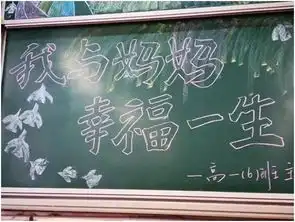 我与妈妈
幸福一生
—高一(6)班主